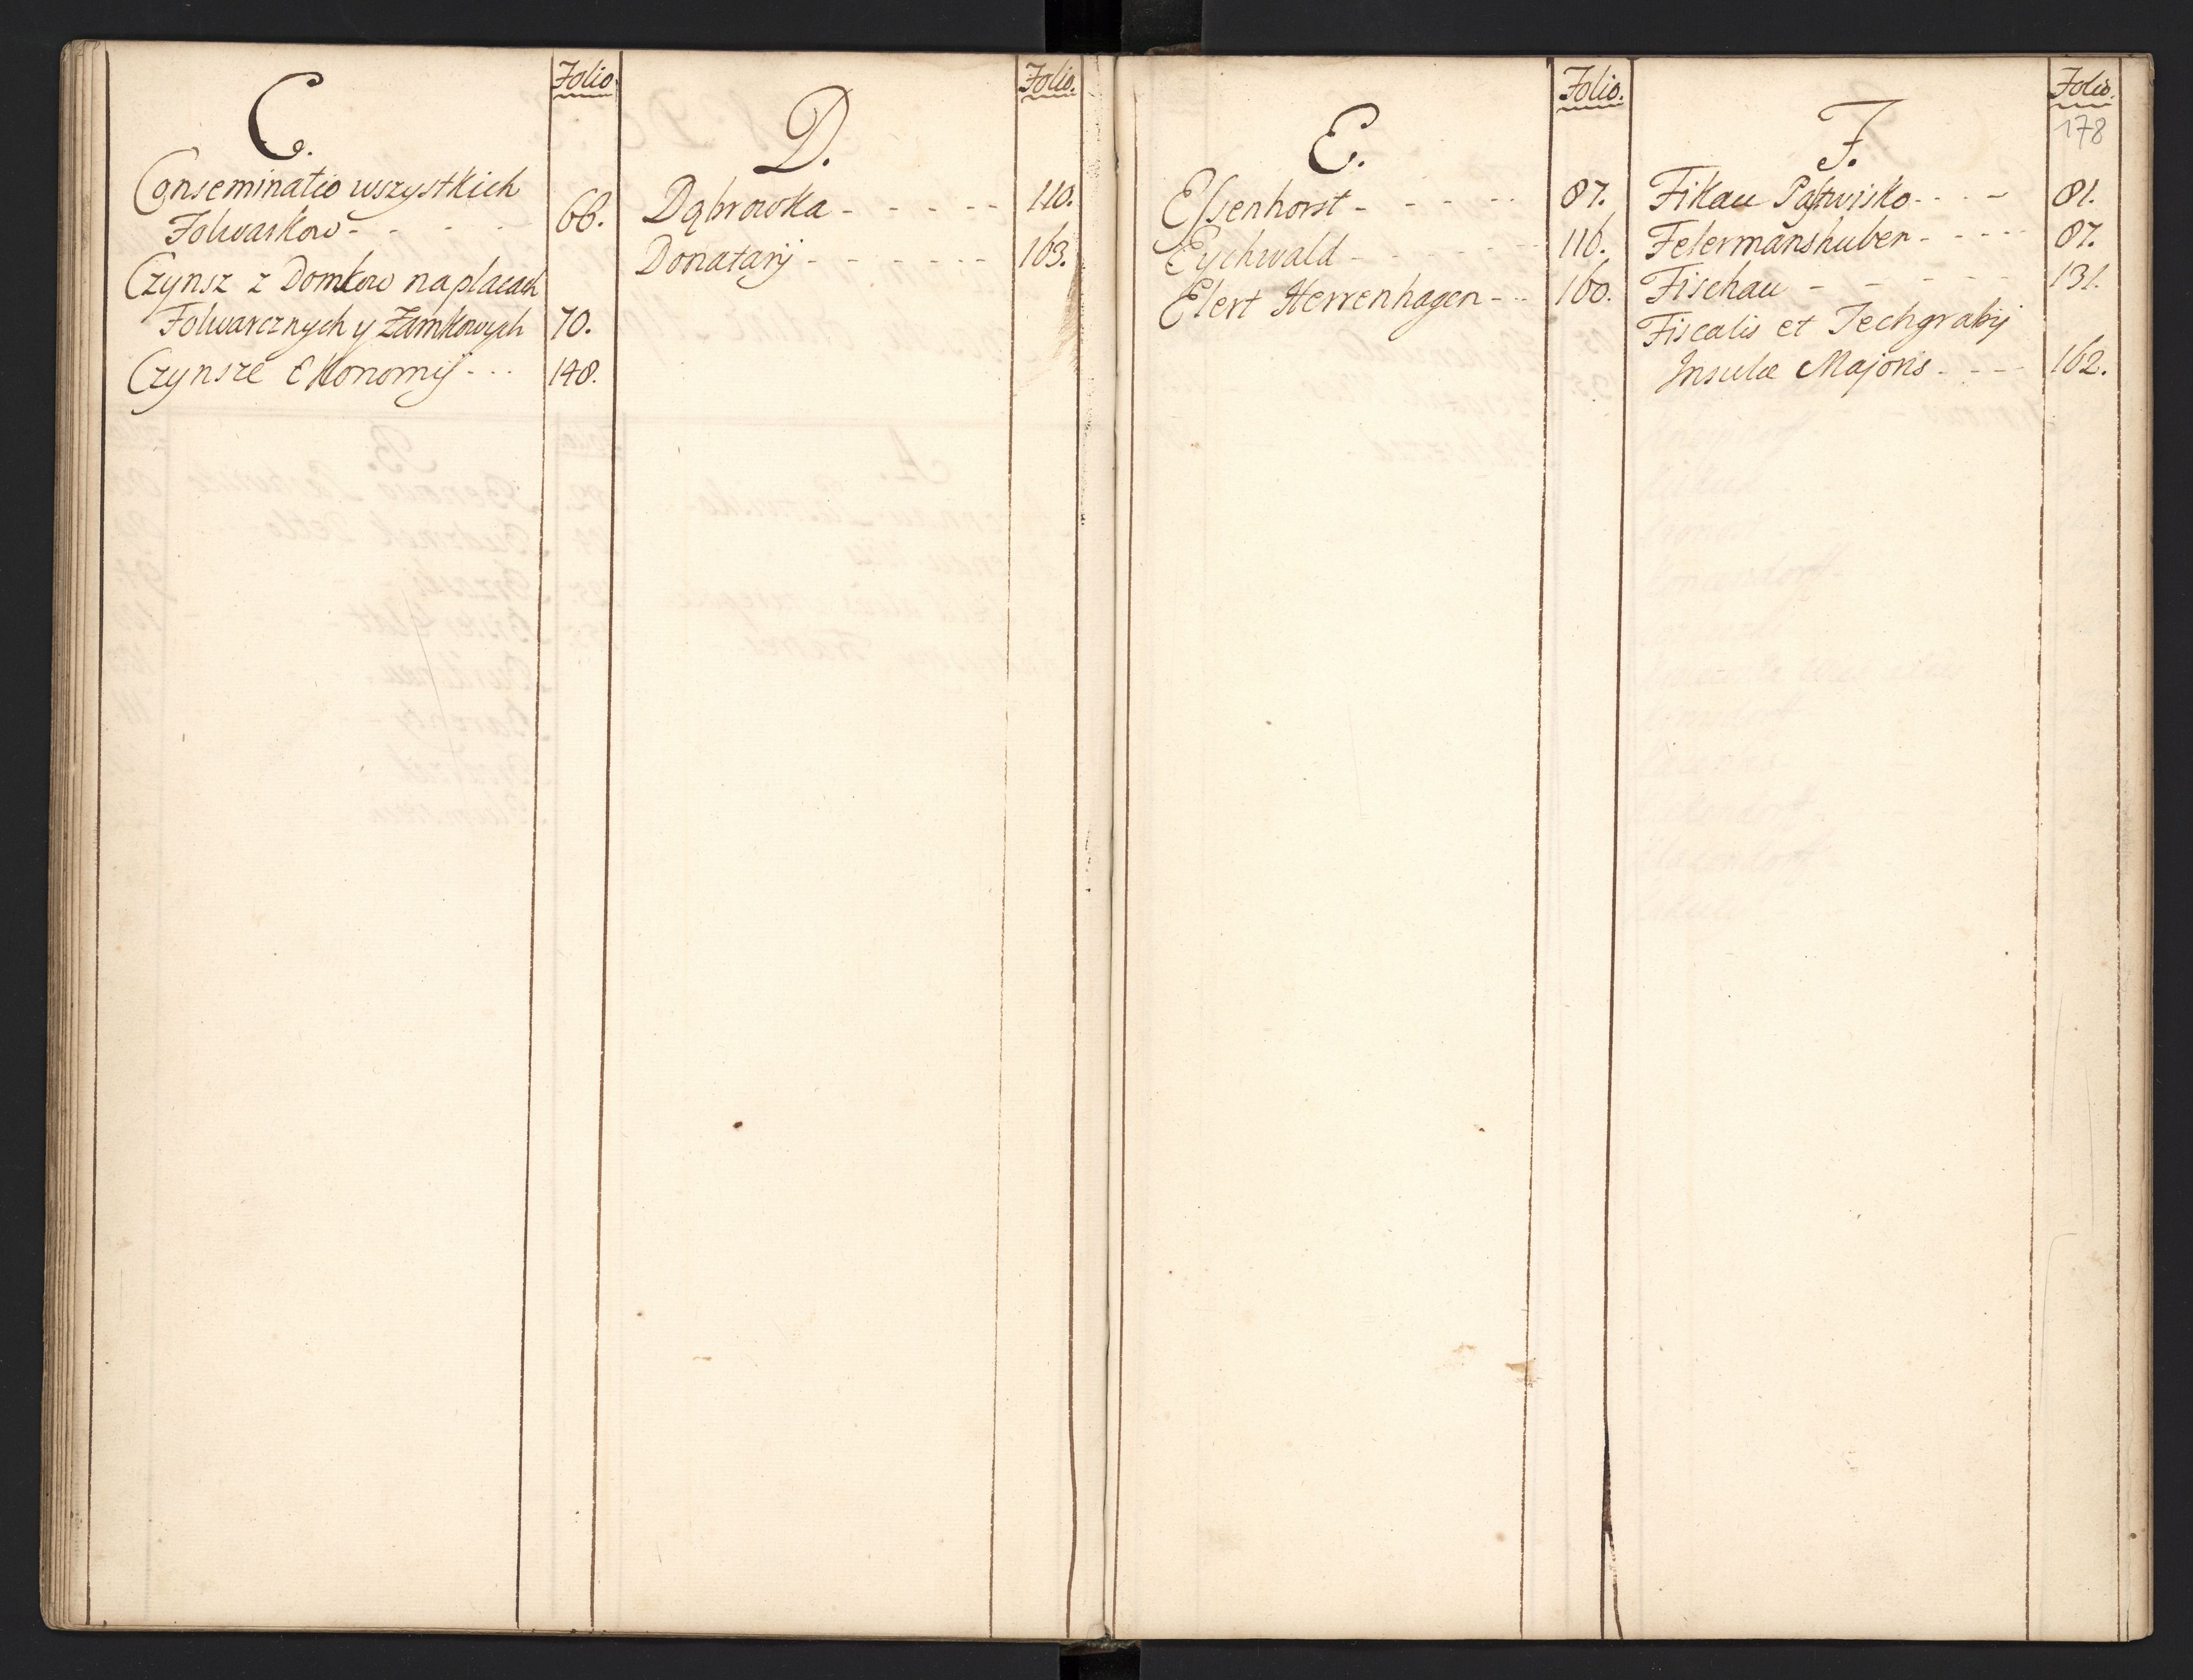 Folio.
C.
Conseminatio wszystkich
Folwarkow - - - - - 66.
Czynsz z Domkow na placach
Folwarcznych y Zamkowych 70.
Czynsze Ekonomij - - - 148.
Folio.
D.
Dąbrowka - - - - - 110.
Donatarij - - - - - - - 163.
Folio.
E.
Elsenhorst - - - - - 87.
Eychwald - - - - - - 116.
Elert Herrenhagen - - - 160.
Folio.
178
F.
Fikau Pastwisko - - - - 81.
Felermanshuben - - - - - 87.
Fischau - - - - - 131.
Fiscalis et Techgrabij
Insulæ Majoris - - - - 162.